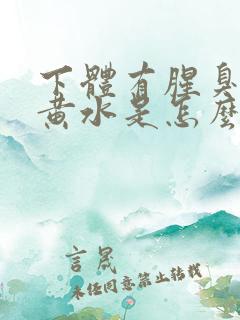 下體有腥臭
黃水是怎麼
言晟
未經同意禁止轉載